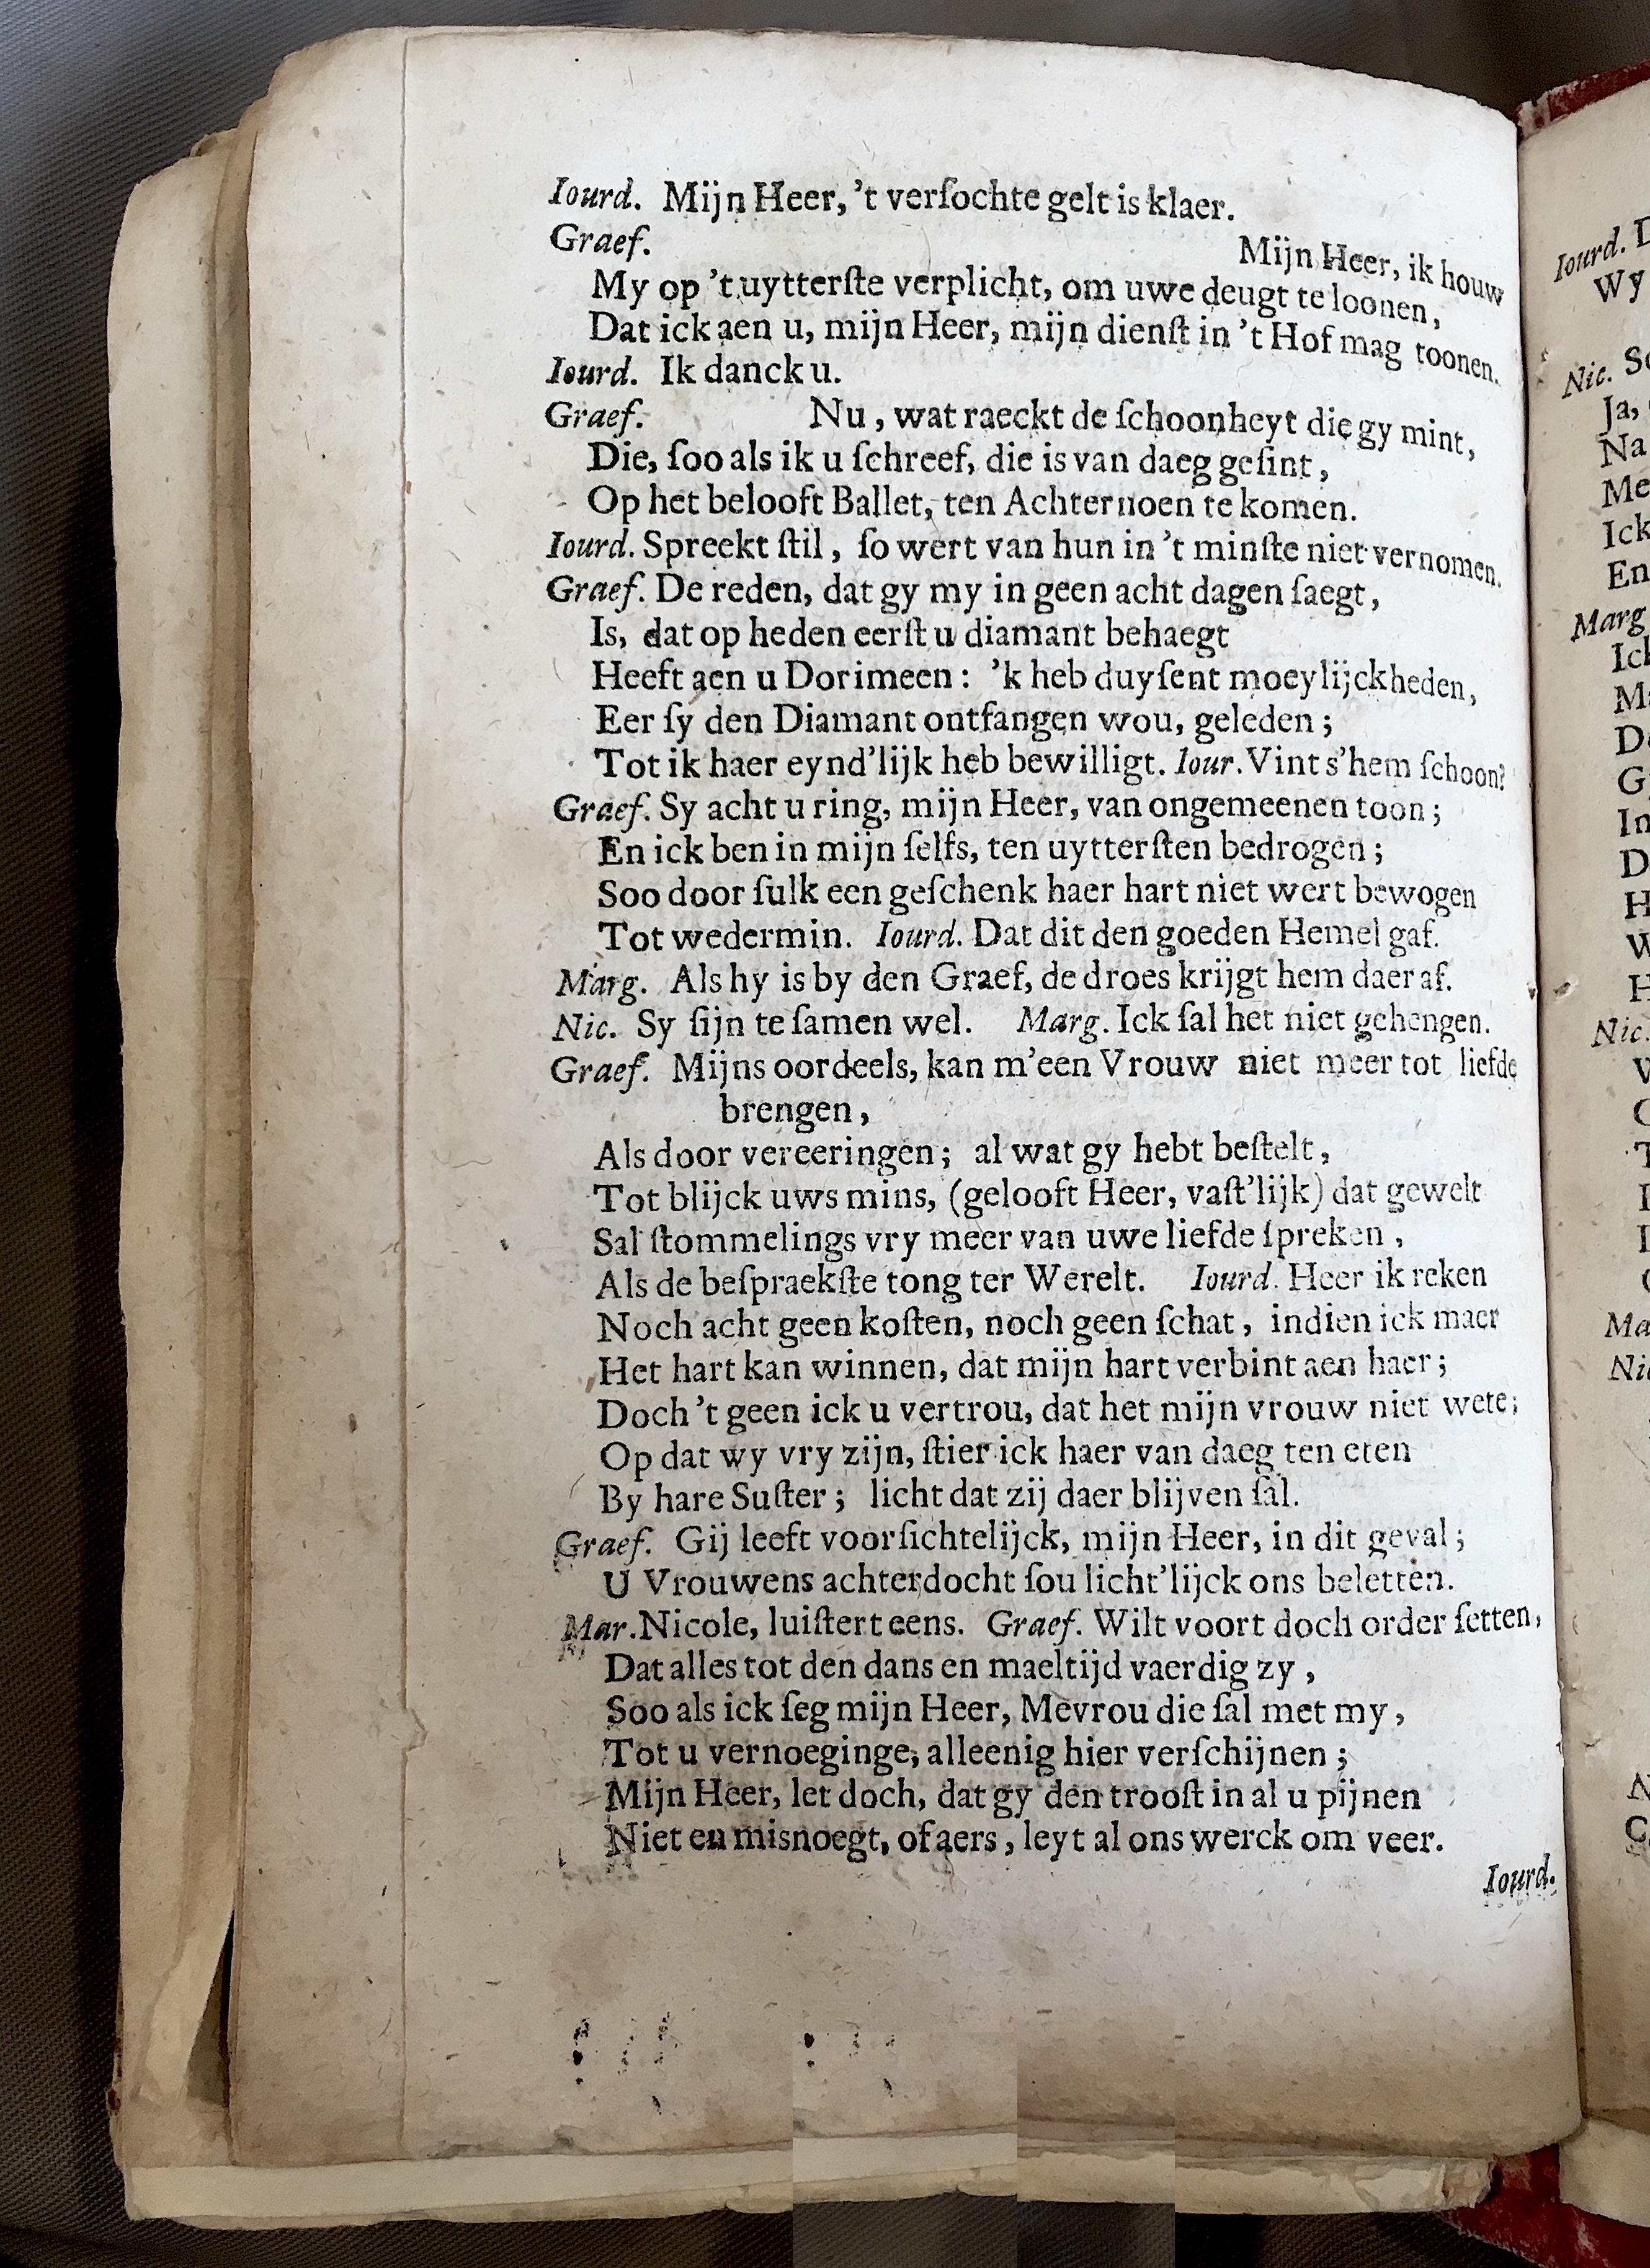 Iourd. Mijn Heer, 't verſochte gelt is klaer.
Graef. Mijn Heer, ik houw
My op 't uytterſte verplicht, om uwe deugt te loonen,
Dat ick aen u, mijn Heer, mijn dienſt in 't Hof mag toonen.
Iourd. Ik danck u.
Graef. Nu, wat raeckt de ſchoonheyt die gy mint,
Die, ſoo als ik u ſchreef, die is van daeg geſint,
Op het belooft Ballet, ten Achternoen te komen.
Iourd. Spreekt ſtil, ſo wert van hun in 't minſte niet vernomen.
Graef. De reden, dat gy my in geen acht dagen ſaegt,
Is, dat op heden eerſt u diamant behaegt
Heeft aen u Dorimeen: 'k heb duyſent moeylijckheden,
Eer ſy den Diamant ontfangen wou, geleden;
Tot ik haer eynd'lijk heb bewilligt. Iour. Vint s'hem ſchoon?
Graef. Sy acht u ring, mijn Heer, van ongemeenen toon;
En ick ben in mijn ſelfs, ten uytterſten bedrogen;
Soo door ſulk een geſchenk haer hart niet wert bewogen
Tot wedermin. Iourd. Dat dit den goeden Hemel gaf.
Marg. Als hy is by den Graef, de droes krijgt hem daer af.
Nic. Sy ſijn te ſamen wel. Marg. Ick ſal het niet gehengen.
Graef. Mijns oordeels, kan m'een Vrouw niet meer tot liefde
brengen,
Als door vereeringen; al wat gy hebt beſtelt,
Tot blijck uws mins, (gelooft Heer, vaſt'lijk) dat gewelt
Sal ſtommelings vry meer van uwe liefde ſpreken,
Als de beſpraekſte tong ter Werelt. Iourd. Heer ik reken
Noch acht geen koſten, noch geen ſchat, indien ick maer
Het hart kan winnen, dat mijn hart verbint aen haer;
Doch 't geen ick u vertrou, dat het mijn vrouw niet wete;
Op dat wy vry zijn, ſtier ick haer van daeg ten eten
By hare Suſter; licht dat zij daer blijven ſal.
Graef. Gij leeft voorſichtelijck, mijn Heer, in dit geval;
U Vrouwens achterdocht ſou licht'lijck ons beletten.
Mar. Nicole, luiſtert eens. Graef. Wilt voort doch order ſetten,
Dat alles tot den dans en maeltijd vaerdig zy,
Soo als ick ſeg mijn Heer, Mevrou die ſal met my,
Tot u vernoeginge, alleenig hier verſchijnen;
Mijn Heer, let doch, dat gy den trooſt in al u pijnen
Niet en misnoegt, of aers, leyt al ons werck om veer.
Iourd.
Iourd.
Wy
Nic.
Ja,
Na
Me
Ick
En
Marg
Nic.
Ma